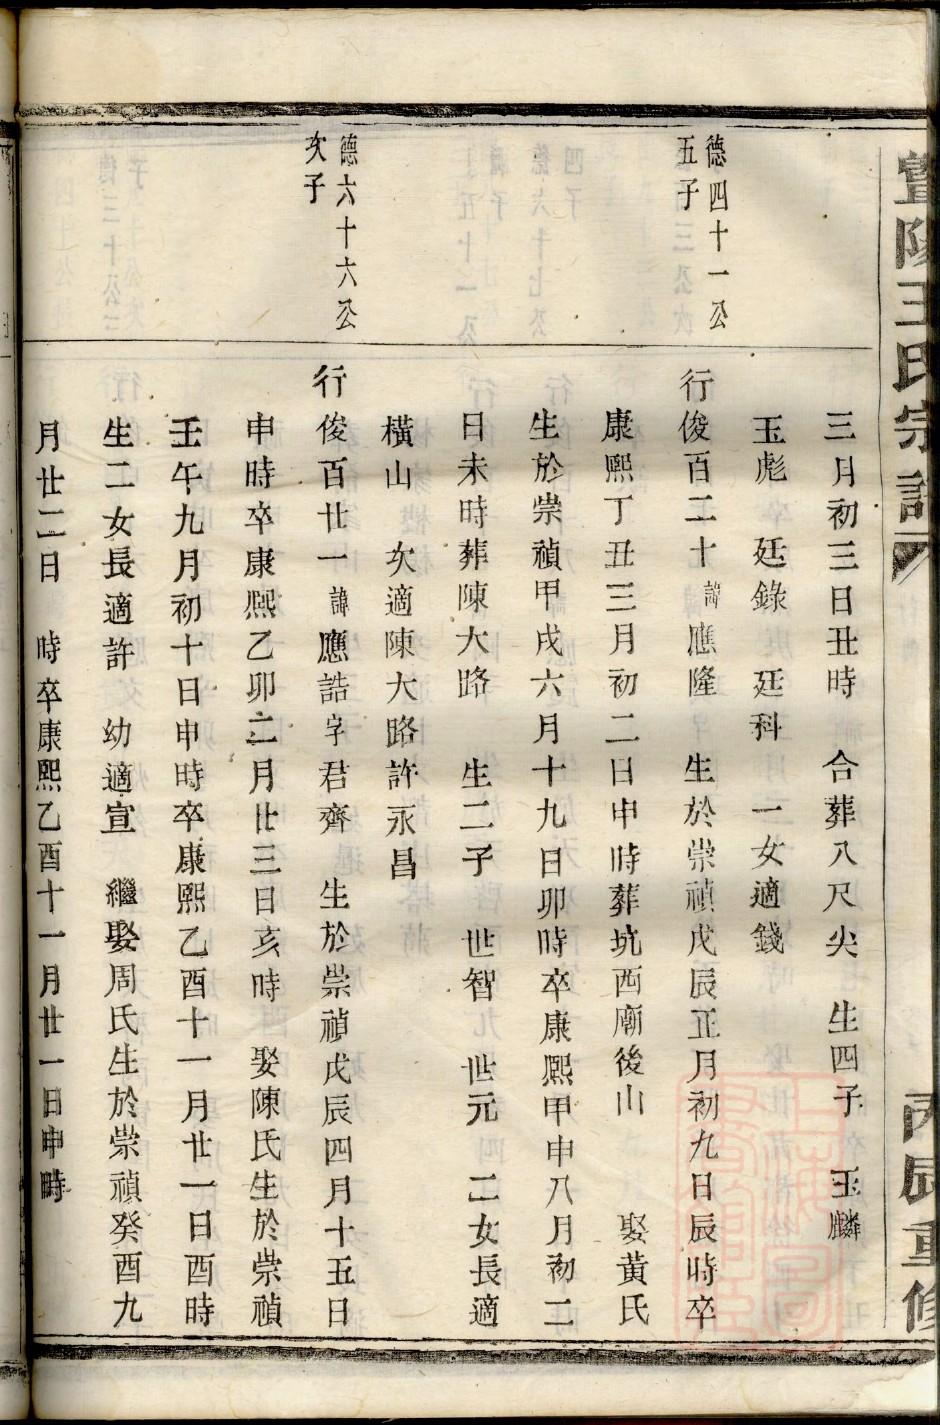 暨陽王氏宗譜
丙辰重修
三月初三日丑時　合葬八尺尖　生四子　玉麟
玉彪　廷錄　廷科　一女適錢
德四十一公
五子
行俊百二十諱應隆　生於崇禎戊辰正月初九日辰時卒
康熙丁丑三月初二日申時葬坑西廟後山　娶黃氏
生於崇禎甲戌六月十九日卯時卒康熙甲申八月初二
日未時葬陳大路　生二子　世智　世元　二女長適
橫山　次適陳大路許永昌
德六十六公
次子
行俊百廿一諱應誥字君齊　生於崇禎戊辰四月十五日
申時卒康熙乙卯二月廿三日亥時　娶陳氏生於崇禎
壬午九月初十日申時卒康熙乙酉十一月廿一日酉時
生二女長適許　幼適宣　繼娶周氏生於崇禎癸酉九
月廿二日　時卒康熙乙酉十一月廿一日申時